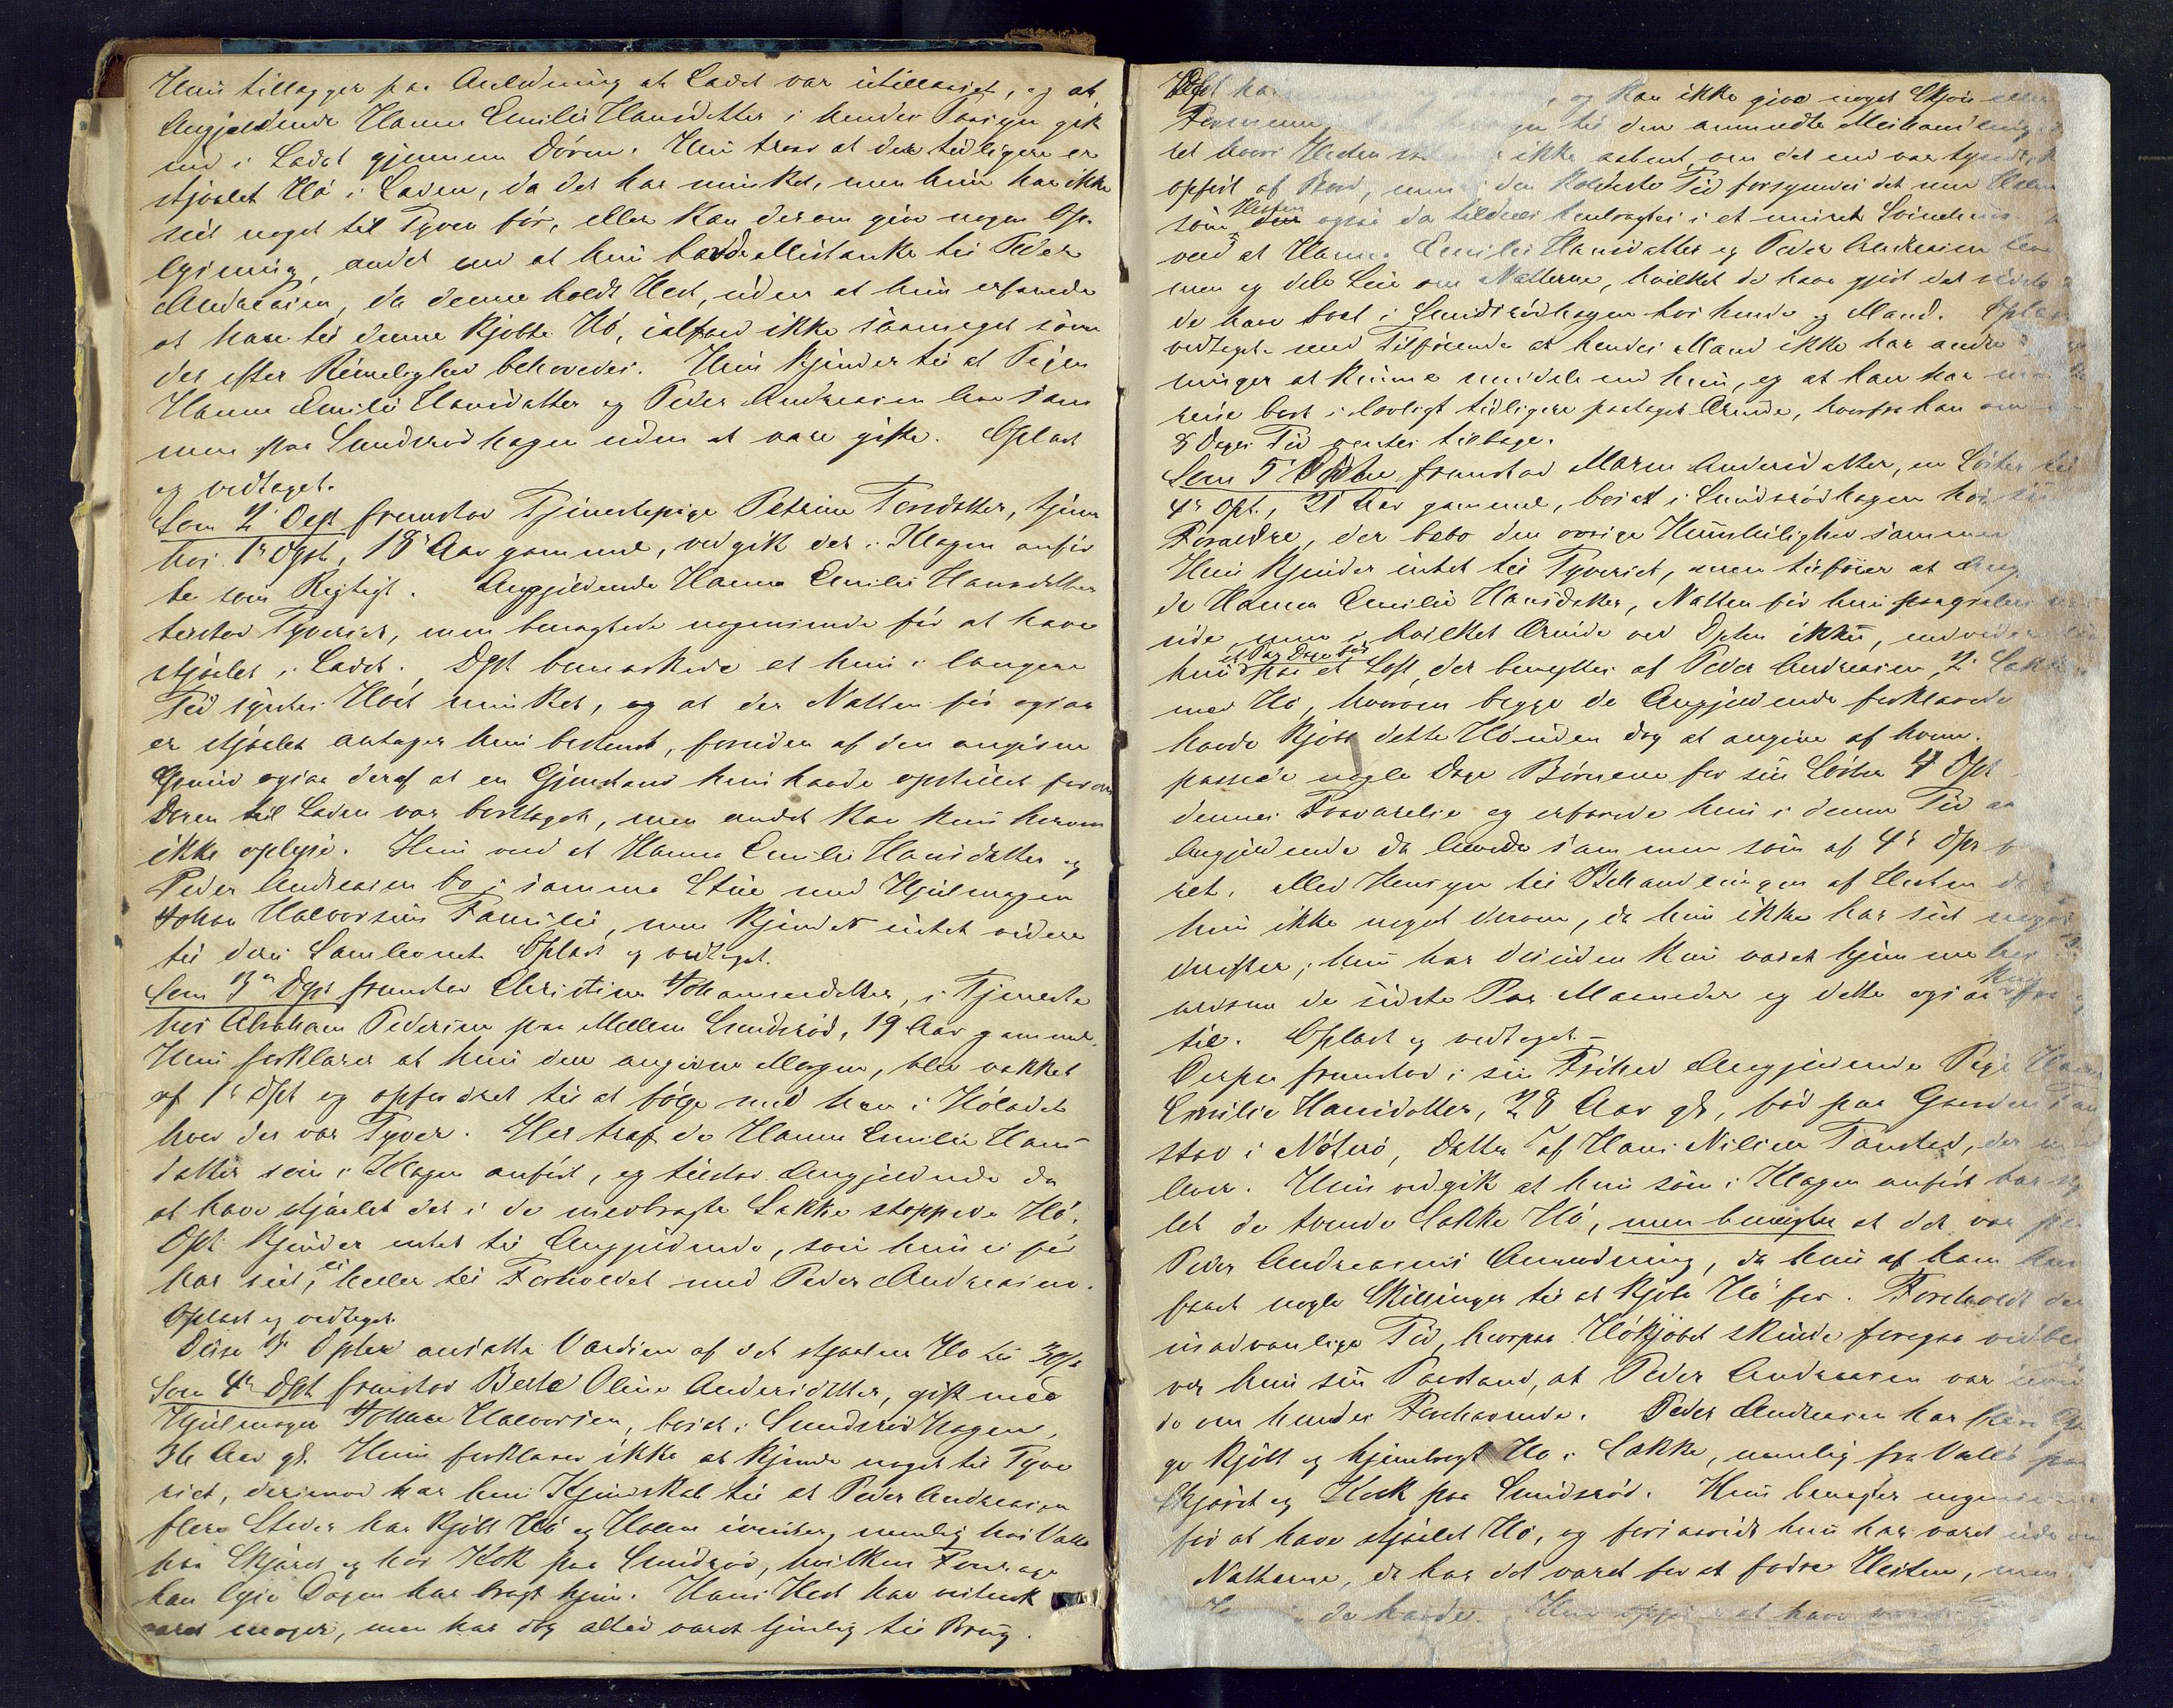 Hun tillægger paa Anledning at Ladet var utillaaset, og at
Angjældende Hanne Emilie Hansdatter i hendes Paasyn gik
ind i Ladet gjennem Døren. Hun troer at der tidligere er
stjaalet Hö i Laden, da det har minket, men hun har ikke
seet noget til Tyven för, eller kan derom give nogen Op-
lysning, andet end at hun havde Mistanke til Peder
Andreasen, da denne holdt Hest, uden at hun erfarede
at have til denne kjöbte Hö, ialfald ikke saameget som
der efter Rimelighed behövedes. Hun kjender til at Pigen
Hanne Emilie Hansdatter og Peder Andreasen bor sam
men paa Sundsrödhagen uden at være gifte. Oplæst
og vedtaget.
Som 2 Dept fremstod Tjenestepige Petrine Torsdatter, tjener
hos 1ste Dpt, 18 Aar gammel, vedgik det i Klagen anför
te som Rigtigt. Angjeldende Hanne Emilie Hansdatter
tilstod Tyveriet, men benægtede nogensinde för at have
stjaalet i Ladet. Dpt bemærkede at hun i længere
Tid syntes Höet minket, og at der Natten för ogsaa
er stjaalet antager hun bestemt, foruden af den angivne
Grund ogsaa deraf at en Gjenstand hun havde opstillet foran
Døren til Laden var borttaget, men andet kan hun herom
ikke oplyse. Hun ved at Hanne Emilie Hansdatter og
Peder Andreasen bo i samme Stue med Hjulmager
Johan Halvorsens Familie, men kjender intet videre
til deres Samlevnet. Oplæst og vedtaget.
Som 3die Dpt fremstod Christine Johannesdatter, i Tjeneste
hos Abraham Pedersen paa Mellem Sundsröd, 19 Aar gammel.
Hun forklarer at hun den angivne Morgen, blev vækket
af 1ste Dpt og opfordret til at fölge med hen i Höladet
hvor der var Tyver. Her traf de Hanne Emilie Hans-
datter som i Klagen anfört, og tilstod Angjeldende da
at have stjaalet det i de medbragte Sække stoppede Hö.
Dpt kjender intet til Angjeldende, som hun ei för
har seet, ei heller til Forholdet med Peder Andreasen.
Oplæst og vedtaget.
Disse 3 Dpter ansatte Værdien af det stjaalne Hö til
Som 4de Dpt fremstod Berte Oline Andersdatter, gift med
Hjulmager Johan Halvorsen, boset i Sundsröd Hagen,
36 Aar gl. Hun forklarer ikke at kjende noget til Tyve
riet, derimod har hun Kjendskab til at Peder Andreasen
flere Steder har kjöbt Hö og Halm ivinter, nemlig hos Valle
paa Skjæret og hos Kok paa Sundsröd, hvilken Fourage
han lyse Dagen har bragt hjem. Hans Hest har vistnok
været mager, men har dog altid været tjenlig til Brug.
Dpt har , og kan ikke give noget Skjøn
til den anmeldte Mishandling
ret hvori Hesten ikke aabent, om det end var tyndt
opfört af Bord, men i den koldeste Tid forsynedes det med Halm
som Hesten ogsaa da tildels henbragtes i et muret Svinehus.
ved at Hanne Emilie Hansdatter og Peder Andreasen
men og dele Leie om Nætterne, hvilket de have gjort det sidste
de have boet i Sundsrödhagen hos hende og Mand. Oplæst
vedtaget med Tilföiende at hendes Mand ikke har andre
ninger at kunne meddele end hun, og at han har
reise bort i lovligt tidligere paataget Ærende, hvorfra han om
8 Dages Tid ventes tilbage.
Som 5 Dpt fremstod Maren Andersdatter, en Søster til
4de Dpt., 21 Aar gammel, boset i Sundsrödhagen hos sine
Forældre, der bebo den övrige Husleilighed sammen
Hun kjender intet til Tyveriet, men tilföier at Ang
de Hanne Emilie Hansdatter, Natten för hun paagrebes
ude, men i hvilket Ærinde ved Dpten ikke, endvidere
hun et Par Dage før paa et Loft, der benyttes af Peder Andreasen, 2 Sække
med Hö, hvorom begge de Angjeldende forklarede
havde kjöbt dette Hö uden dog at angive af hvem.
passede nogle Dage Börnene for sin Söster 4 Dpt
dennes Fraværelse og erfarede hun i denne Tid at
Angjeldende da levede sammen som af 4de Dpt
ret. Med Hensyn til Behandlingen af Hesten
hun ikke noget derom, da hun ikke har seet noget
derefter; hun har desuden kun været hjemme hos
ældrene de sidste Par Maaneder og dette ogsaa kun fra
til. Oplæst og vedtaget.
Derpaa fremstod i sin Frihed Angjeldende Pige Hanne
Emilie Hansdatter, 28 Aar gl, född paa Gaarden
stad i Nöterö, Datter af Hans Nilsen
lever. Hun vedgik at hun som i Klagen anfört har stjaa
let de tvende Sække Hö, men benægter at det var paa
Peder Andreasens Anmodning, da hun af ham har
faaet nogle Skillinger til at kjöbe Hö for. Foreholdt den
usædvanlige Tid, hvorpaa Hökjöbet skulde foregaa vedbli
ver hun sin Paastand, at Peder Andreasen var
de om hendes Forehavende. Peder Andreasen har flere Gan
ge kjöbt og hjembragt Hö i Sække, nemlig fra Valle paa
Skjæret og Kock paa Sundsröd. Hun benægter nogensinde
för at have stjaalet Hö, og forsaavidt hun har været ude om
Nætterne, da har det været for at fodre Hesten, men
de havde. Hun at have